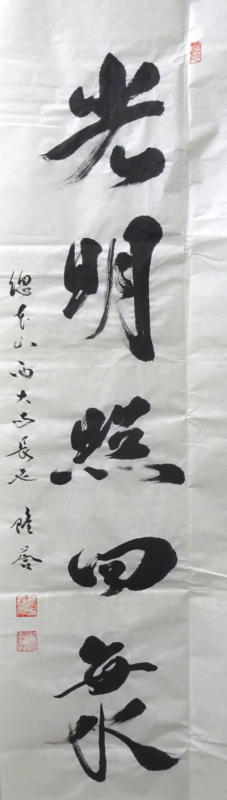 光明照四海
總本山西大寺長老